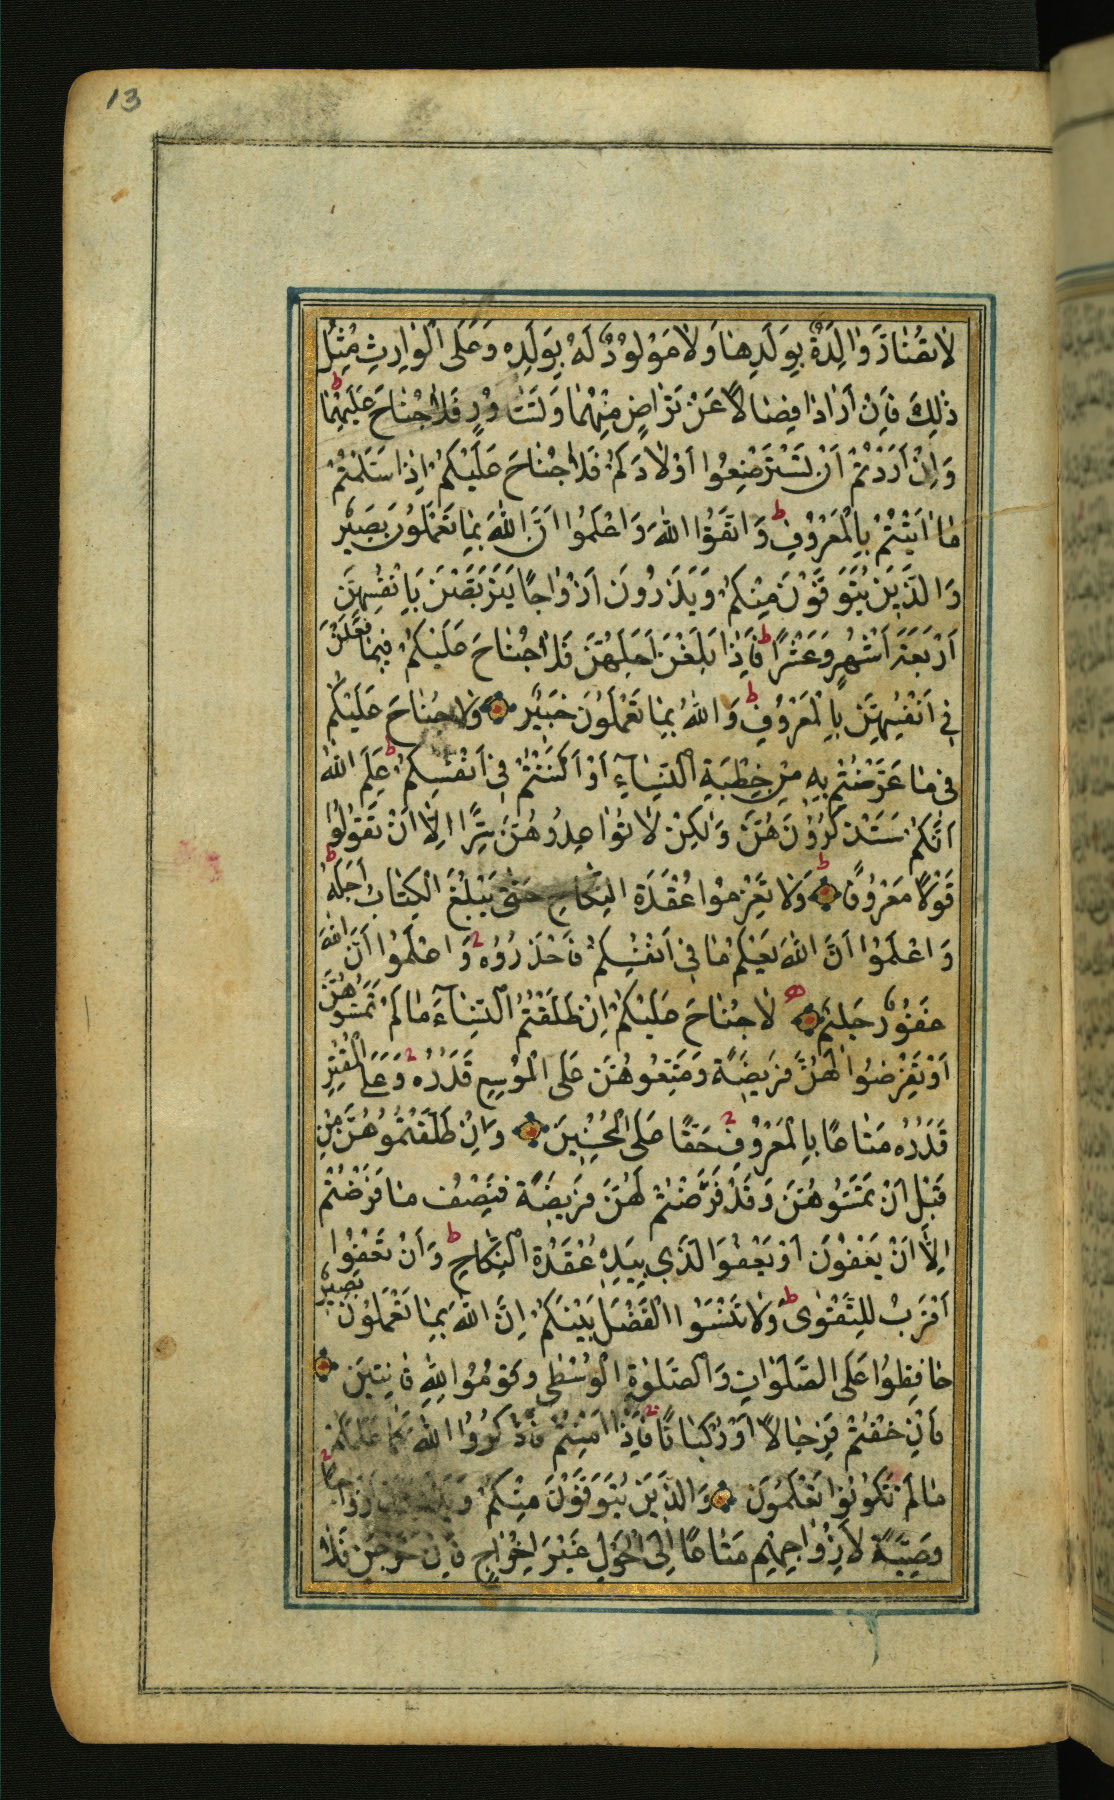 13
لَا تُضَارَّ وَالِدَةٌ بِوَلَدِهَا وَلَا مَوْلُودٌ لَهُ بِوَلَدِهِ وَعَلَى الْوَارِثِ مِثْلُ
ذٰلِكَ فَاِنْ اَرَادَا فِصَالًا عَنْ تَرَاضٍ مِنْهُمَا وَتَشَاوُرٍ فَلَا جُنَاحَ عَلَيْهِمَا ط
وَاِنْ اَرَدْتُمْ اَنْ تَسْتَرْضِعُوا اَوْلَادَكُمْ فَلَا جُنَاحَ عَلَيْكُمْ اِذَا سَلَّمْتُمْ
مَا اٰتَيْتُمْ بِالْمَعْرُوفِ ط وَاتَّقُوا اللّٰهَ وَاعْلَمُوا اَنَّ اللّٰهَ بِمَا تَعْمَلُونَ بَصِيرٌ
وَالَّذِينَ يُتَوَفَّوْنَ مِنْكُمْ وَيَذَرُونَ اَزْوَاجًا يَتَرَبَّصْنَ بِاَنْفُسِهِنَّ
اَرْبَعَةَ اَشْهُرٍ وَعَشْرًا ط فَاِذَا بَلَغْنَ اَجَلَهُنَّ فَلَا جُنَاحَ عَلَيْكُمْ فِيمَا فَعَلْنَ
فِي اَنْفُسِهِنَّ بِالْمَعْرُوفِ ط وَاللّٰهُ بِمَا تَعْمَلُونَ خَبِيرٌ وَلَا جُنَاحَ عَلَيْكُمْ
فِي مَا عَرَّضْتُمْ بِهِ مِنْ خِطْبَةِ النِّسَاءِ اَوْ اَكْنَنْتُمْ فِي اَنْفُسِكُمْ ط عَلِمَ اللّٰهُ
اَنَّكُمْ سَتَذْكُرُونَهُنَّ وَلٰكِنْ لَا تُوَاعِدُوهُنَّ سِرًّا اِلَّا اَنْ تَقُولُوا
قَوْلًا مَعْرُوفًا ط وَلَا تَعْزِمُوا عُقْدَةَ النِّكَاحِ حَتّٰى يَبْلُغَ الْكِتَابُ اَجَلَهُ ط
وَاعْلَمُوا اَنَّ اللّٰهَ يَعْلَمُ مَا فِي اَنْفُسِكُمْ فَاحْذَرُوهُ وَاعْلَمُوا اَنَّ اللّٰهَ
غَفُورٌ حَلِيمٌ لَا جُنَاحَ عَلَيْكُمْ اِنْ طَلَّقْتُمُ النِّسَاءَ مَا لَمْ تَمَسُّوهُنَّ
اَوْ تَفْرِضُوا لَهُنَّ فَرِيضَةً وَمَتِّعُوهُنَّ عَلَى الْمُوسِعِ قَدَرُهُ وَعَلَى الْمُقْتِرِ
قَدَرُهُ مَتَاعًا بِالْمَعْرُوفِ حَقًّا عَلَى الْمُحْسِنِينَ وَاِنْ طَلَّقْتُمُوهُنَّ مِنْ
قَبْلِ اَنْ تَمَسُّوهُنَّ وَقَدْ فَرَضْتُمْ لَهُنَّ فَرِيضَةً فَنِصْفُ مَا فَرَضْتُمْ
اِلَّا اَنْ يَعْفُونَ اَوْ يَعْفُوَا الَّذِي بِيَدِهِ عُقْدَةُ النِّكَاحِ ط وَاَنْ تَعْفُوا
اَقْرَبُ لِلتَّقْوٰى ط وَلَا تَنْسَوُا الْفَضْلَ بَيْنَكُمْ اِنَّ اللّٰهَ بِمَا تَعْمَلُونَ بَصِيرٌ
حَافِظُوا عَلَى الصَّلَوَاتِ وَالصَّلٰوةِ الْوُسْطٰى وَقُومُوا لِلّٰهِ قَانِتِينَ
فَاِنْ خِفْتُمْ فَرِجَالًا اَوْ رُكْبَانًا فَاِذَا اَمِنْتُمْ فَاذْكُرُوا اللّٰهَ كَمَا عَلَّمَكُمْ
مَا لَمْ تَكُونُوا تَعْلَمُونَ وَالَّذِينَ يُتَوَفَّوْنَ مِنْكُمْ وَيَذَرُونَ اَزْوَاجًا
وَصِيَّةً لِاَزْوَاجِهِمْ مَتَاعًا اِلَى الْحَوْلِ غَيْرَ اِخْرَاجٍ فَاِنْ خَرَجْنَ فَلَا